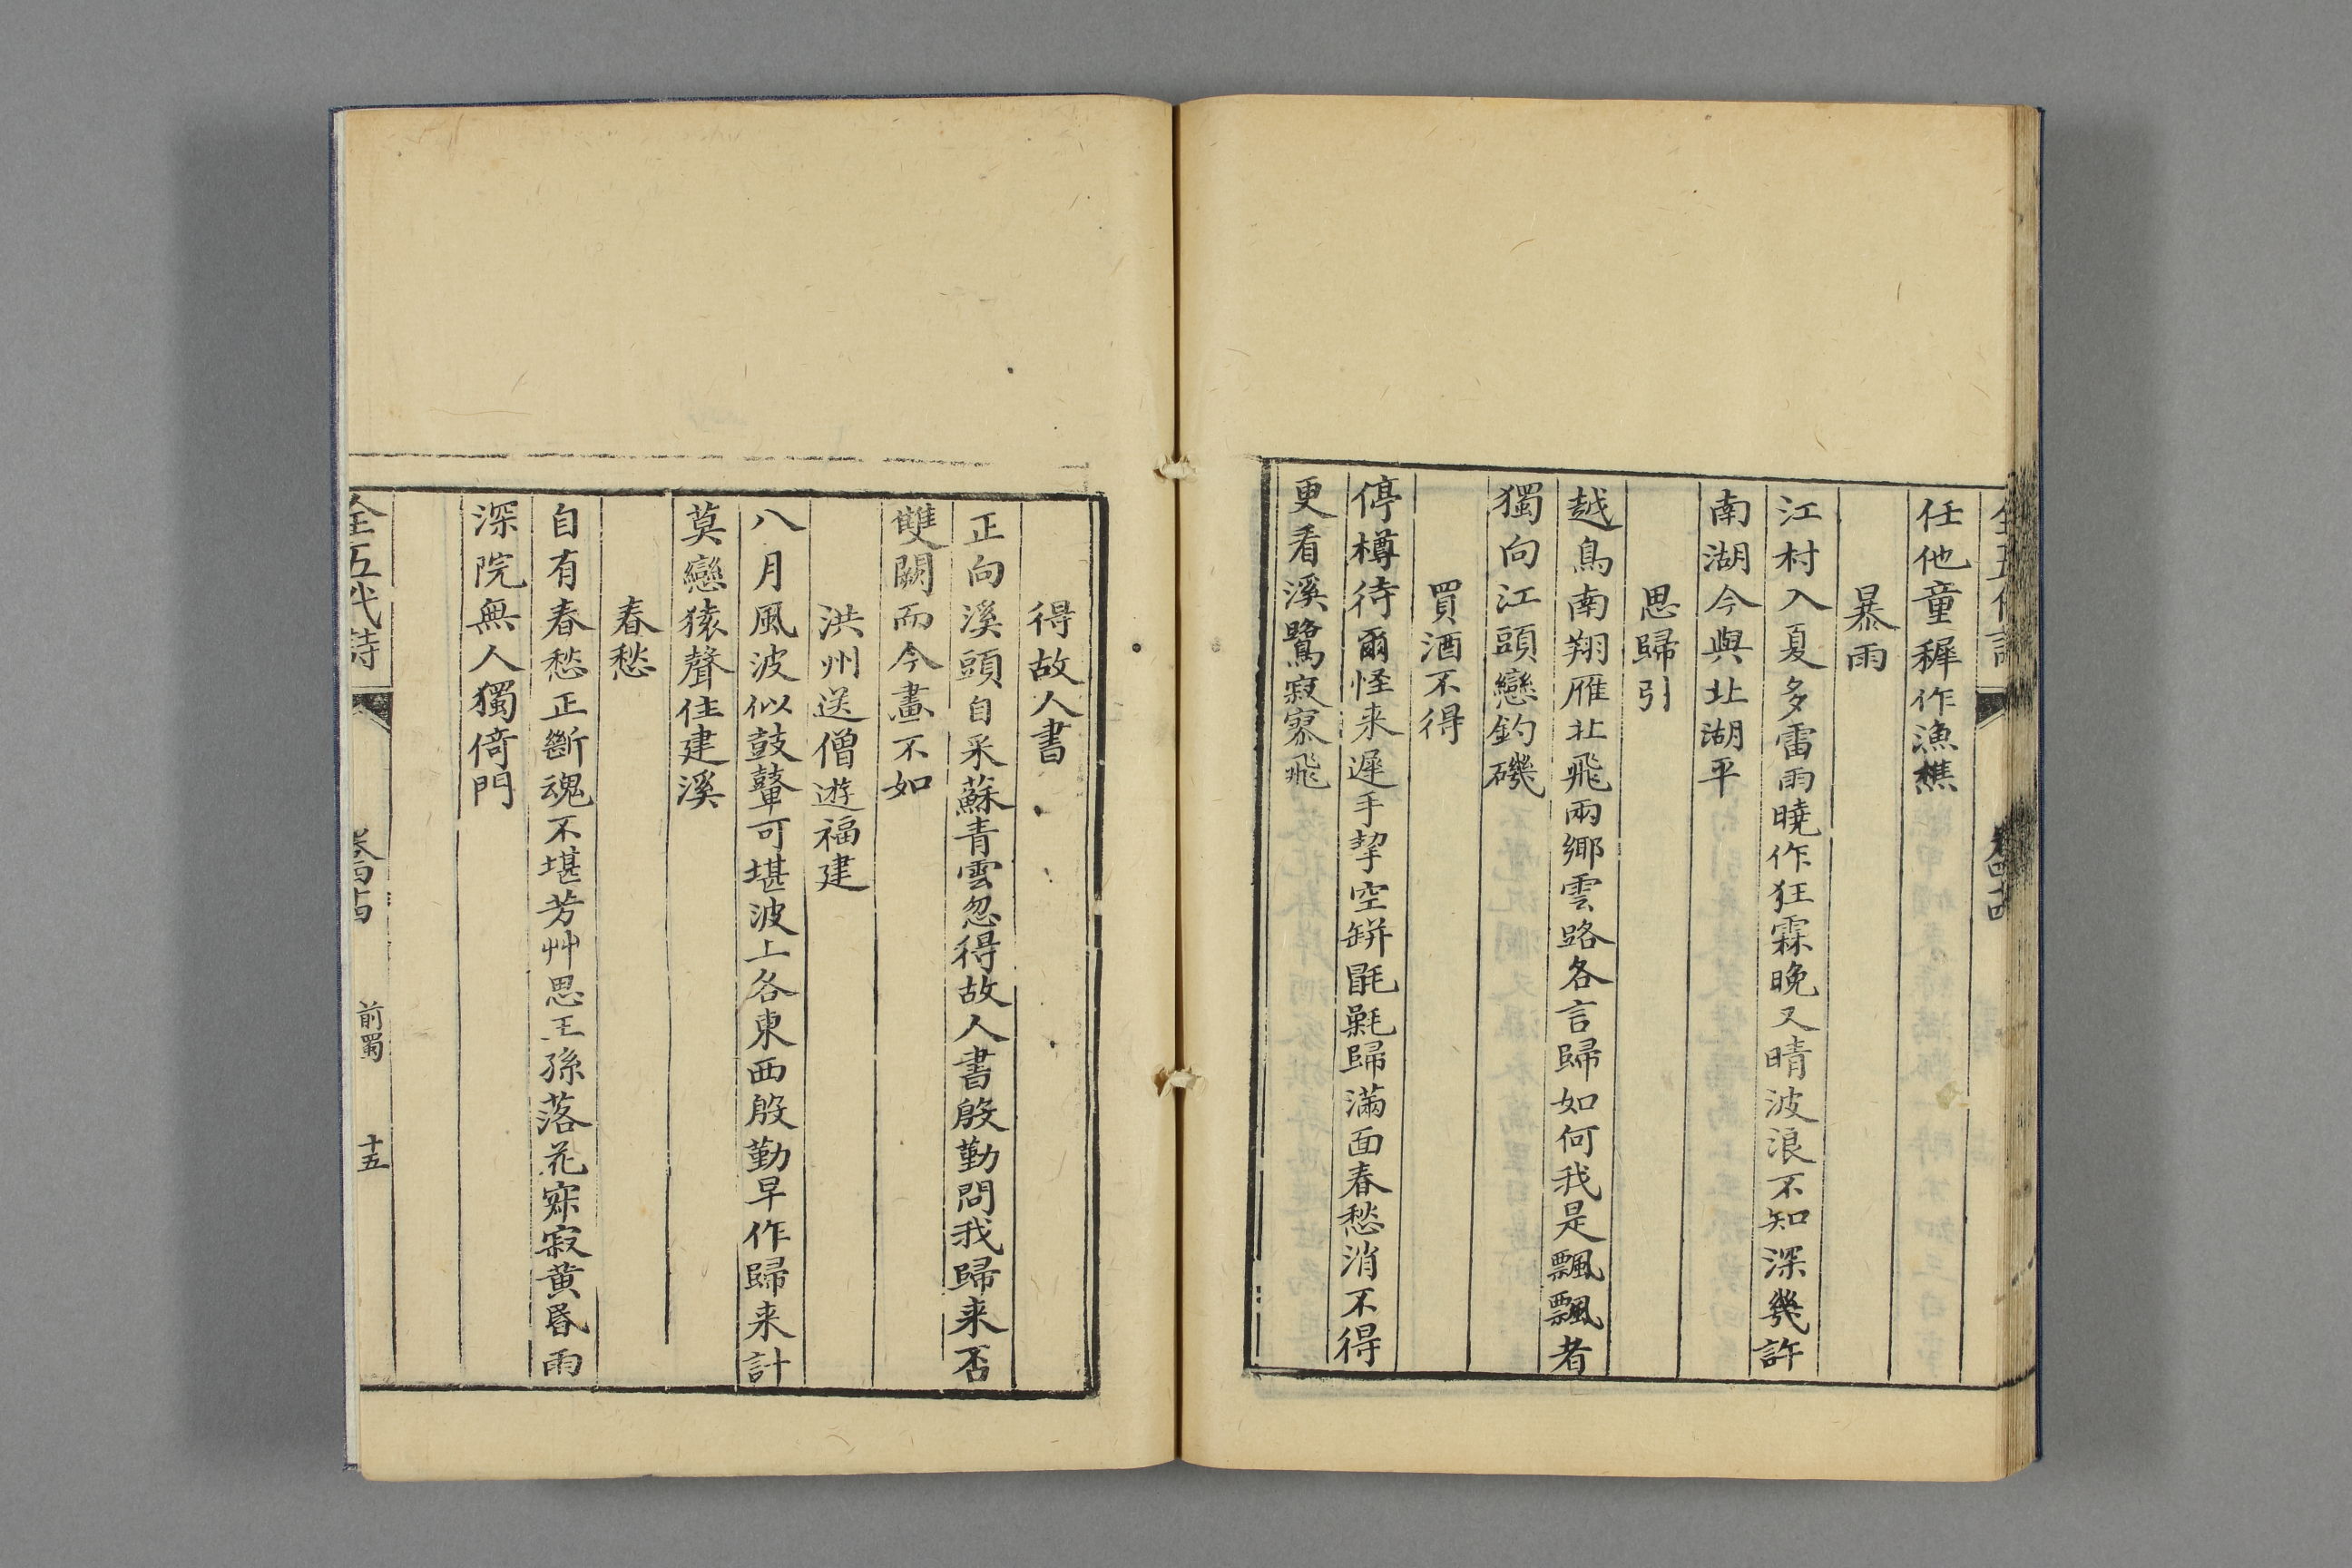 任他童穉作漁樵
暴雨
江村入夏多雷雨曉作狂霖晚又晴波浪不知深幾許
南湖今與北湖平
思歸引
越鳥南翔雁北飛兩鄉雲路各言歸如何我是飄飄者
獨向江頭戀釣磯
買酒不得
停樽待爾怪来遲手挈空缾毷氉歸滿面春愁消不得
更看溪鷺寂寥飛
得故人書
正向溪頭自采蘇青雲忽得故人書殷勤問我歸来否
雙闕而今畫不如
洪州送僧遊福建
八月風波似鼓鼙可堪波上各東西殷勤早作歸来計
莫戀猿聲住建溪
春愁
自有春愁正斷魂不堪芳艸思王孫落花寂寂黃昏雨
深院無人獨倚門
全五代詩
前蜀
十五